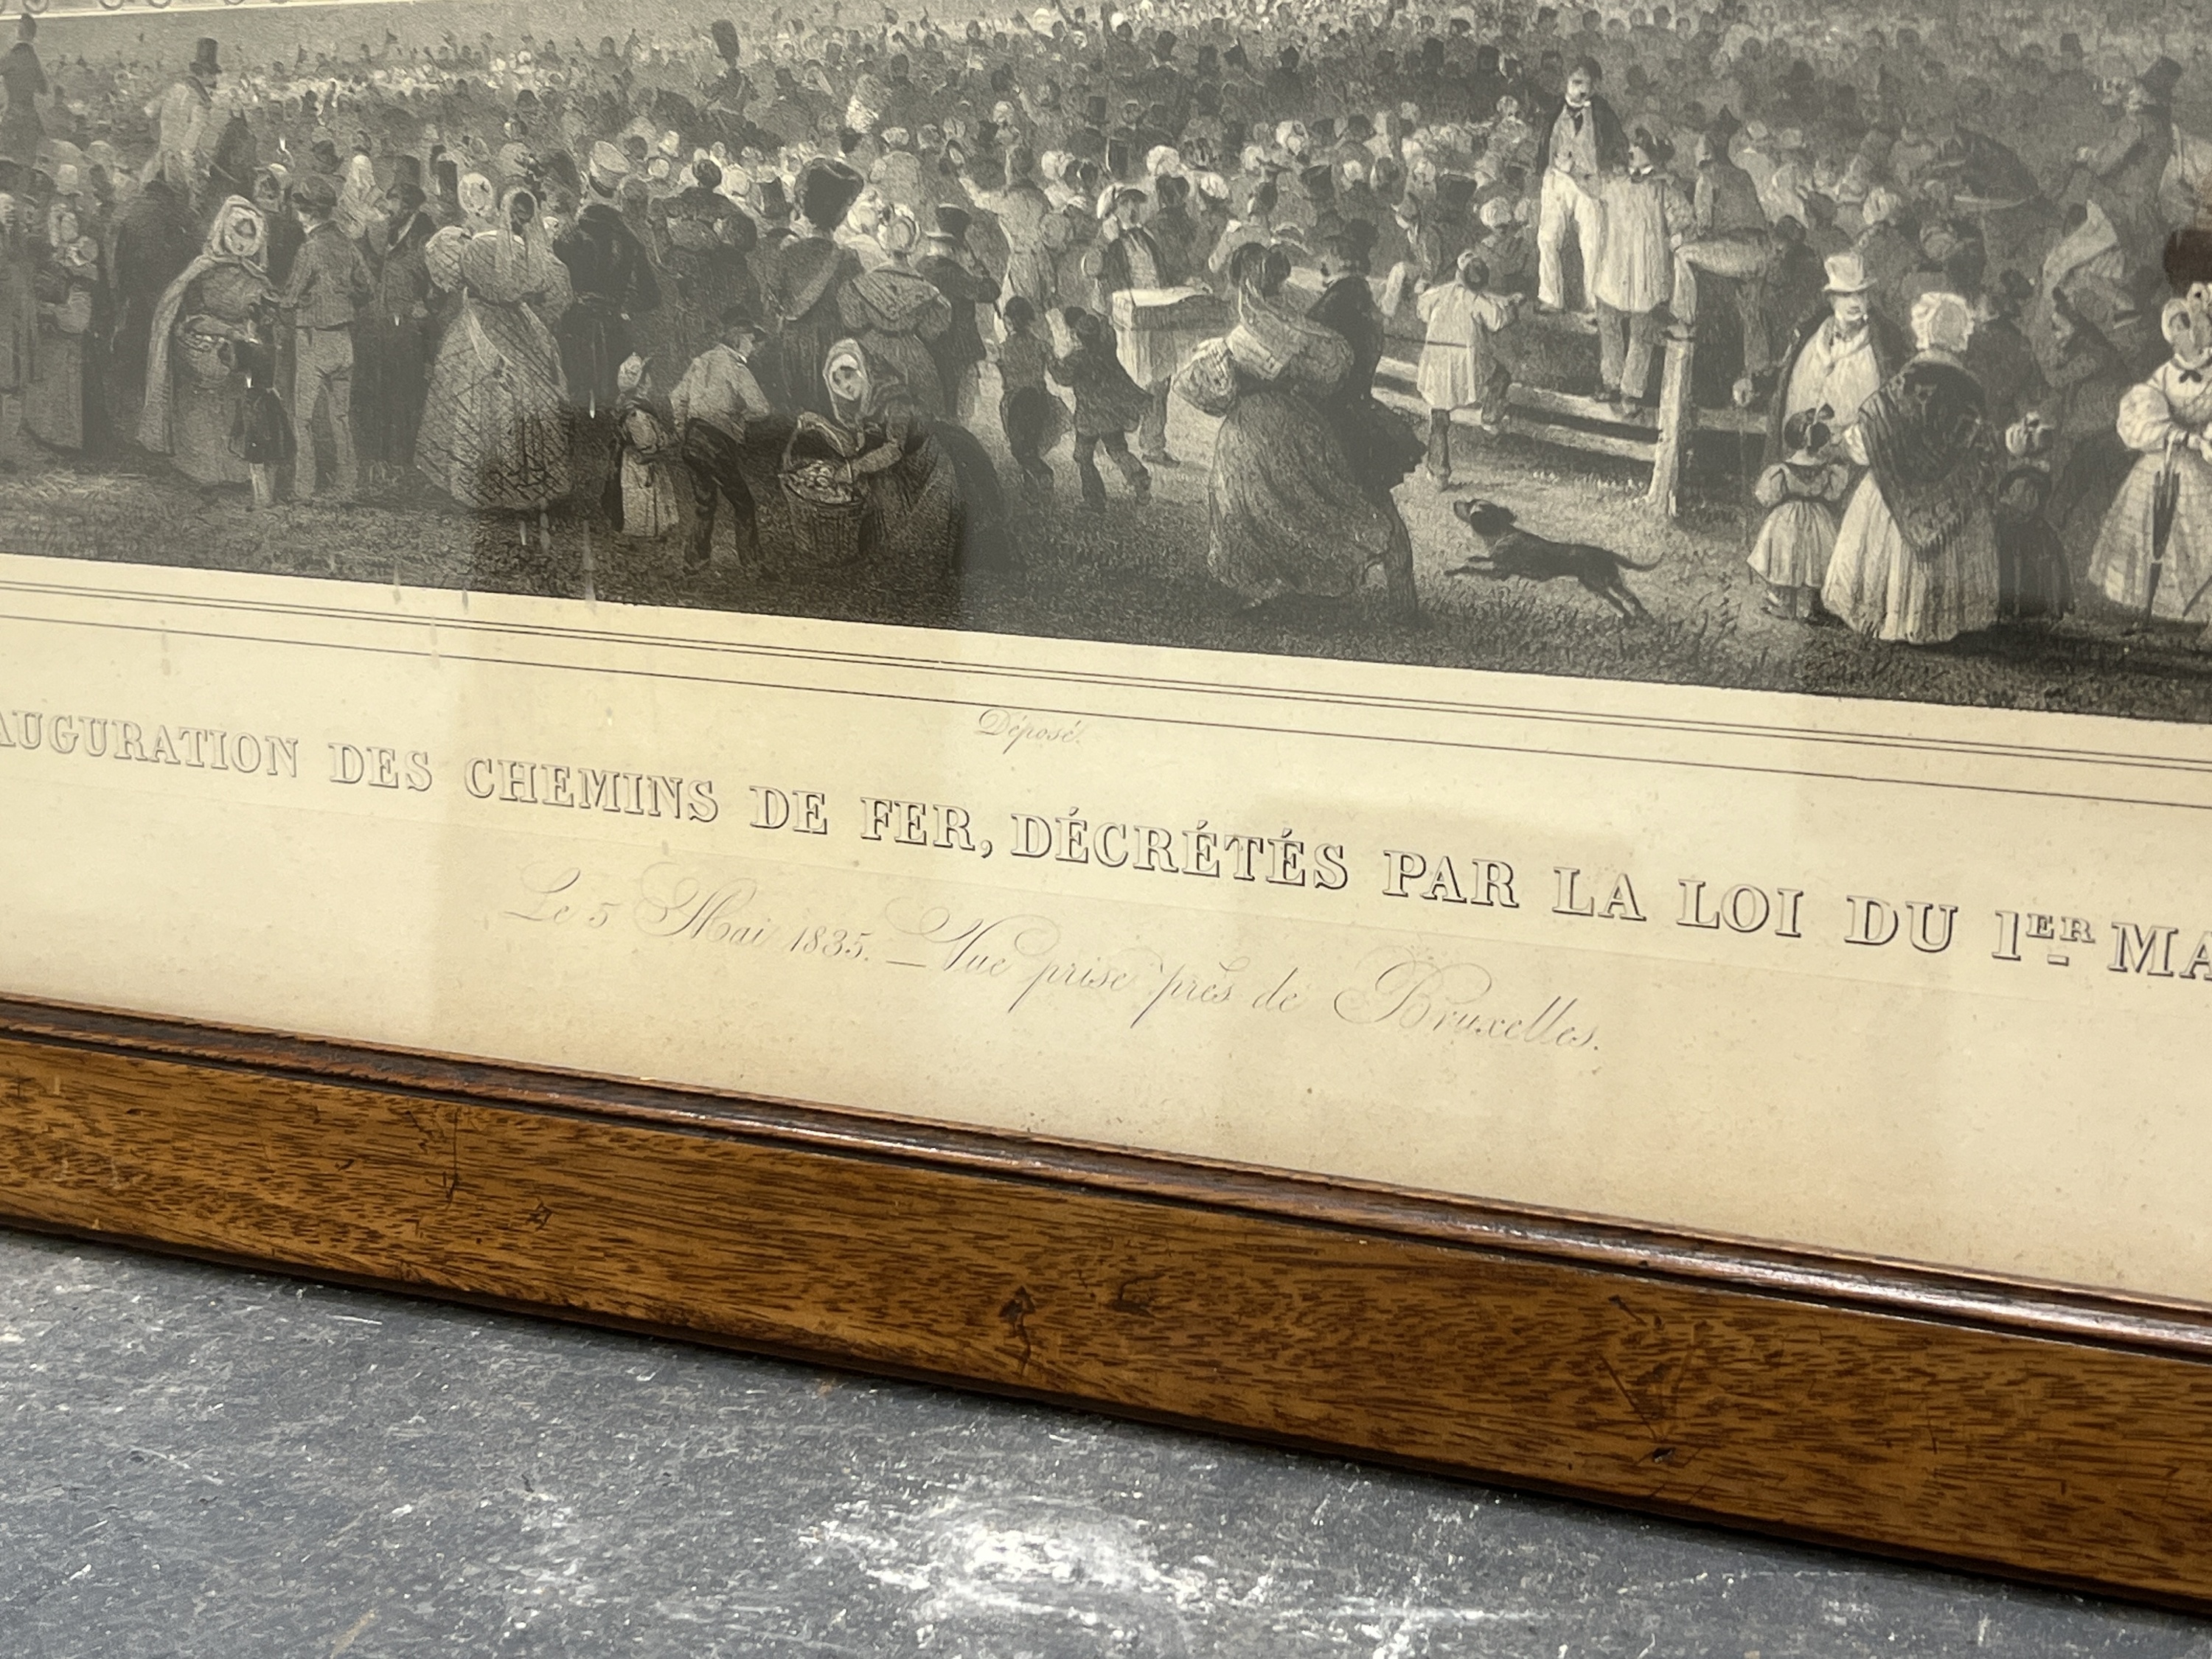 Déposé.
AUGURATION DES CHEMINS DE FER, DÉCRÉTÉS PAR LA LOI DU 1ER MA
Le 5 Mai 1835. — Vue prise près de Bruxelles.